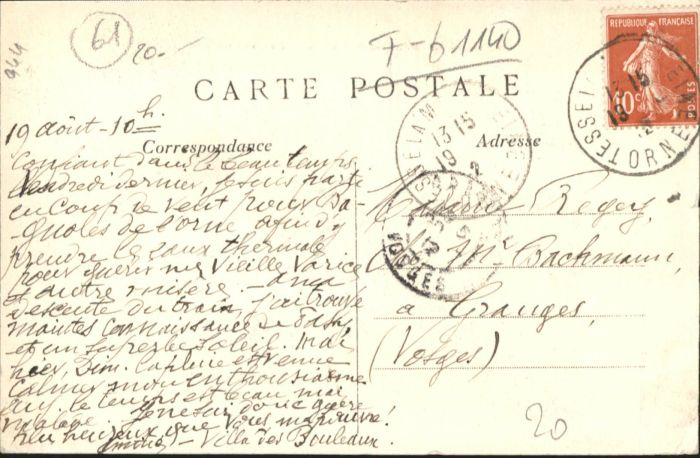 944
61
20.-
F-61140
CARTE POSTALE
REPUBLIQUE FRANÇAISE
10c
POSTES
13 15
19
ORNE
13 15
19
VOSGES
Correspondance
Adresse
19 août - 10h
Confiant dans le beau temps
Vendredi dernier, je suis parti
en coup de vent pour Ba-
gnoles de l'Orne afin d'y
prendre les eaux thermales
pour guérir ma vieille varice
et autre misère. - A ma
descente du train j'ai trouvé
maintes connaissances de
et un superbe soleil. Mais
hier, Dim. la pluie est venue
calmer mon enthousiasme
auj. le temps est beau mais
Je ne suis donc guère
heureux que vous
- Villa des Bouleaux.
Regey,
Mr. Bachmann,
à Granges,
(Vosges)
20